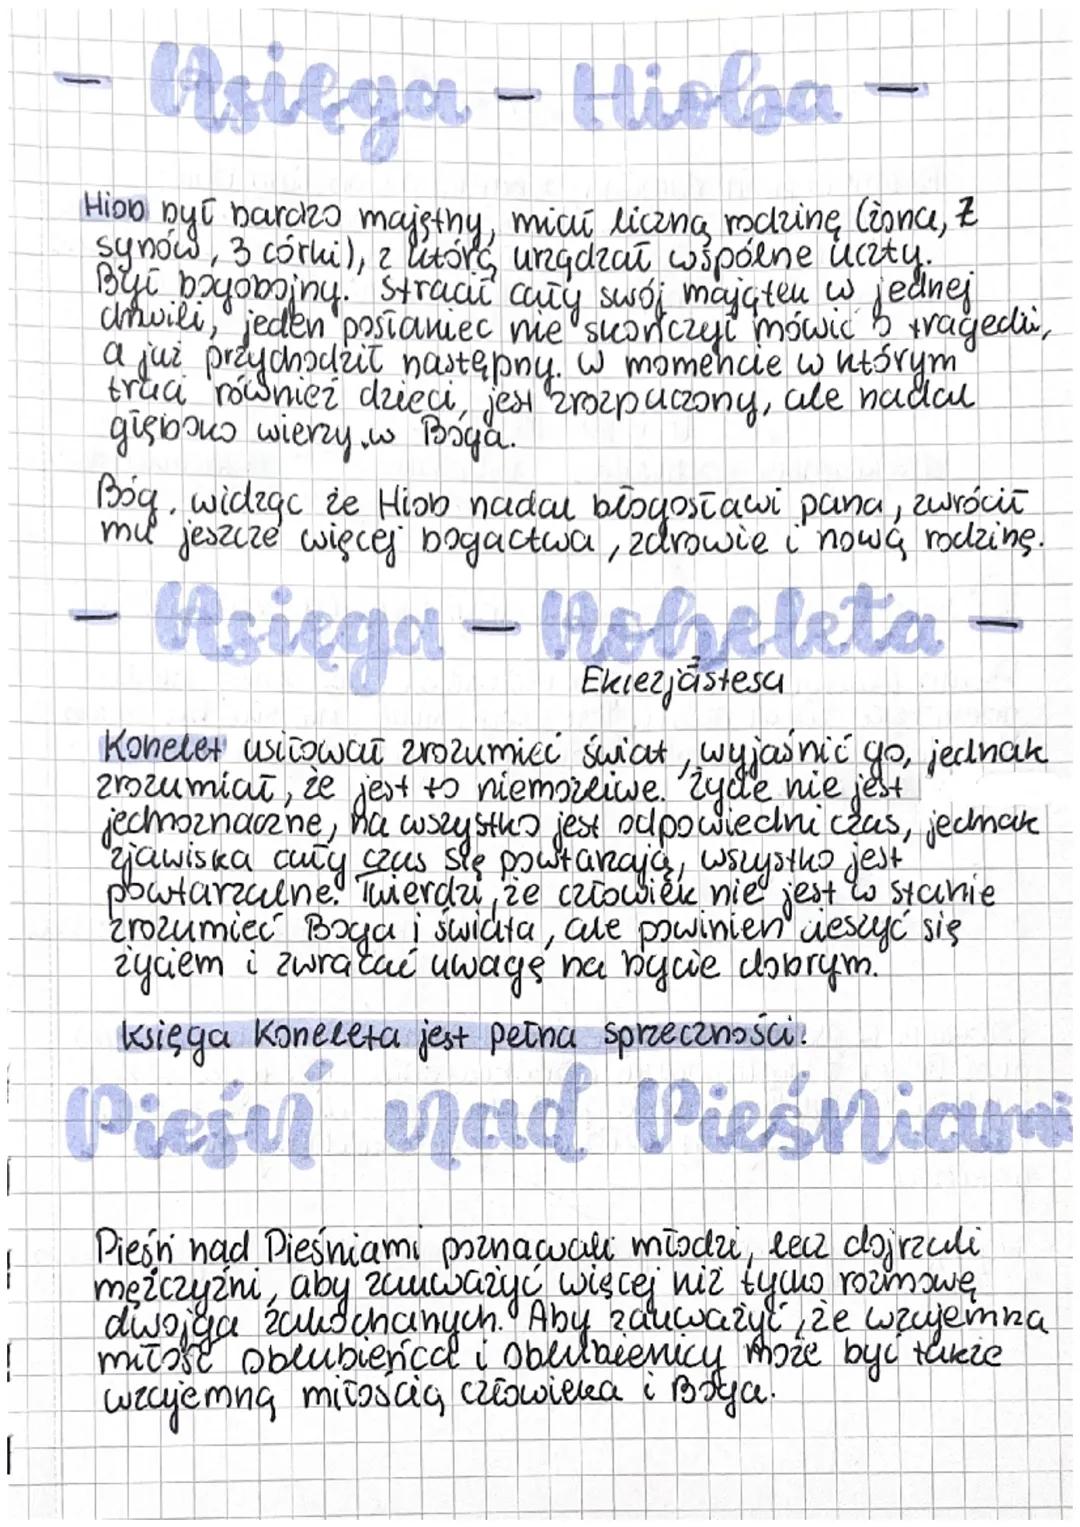 - Księga - Hioba -
Hiob był bardzo majętny, miał liczną rodzinę (żona, 7
synów, 3 córki), z którą urządzał wspólne uczty.
Był bogobojny. Stracił cały swój majątek w jednej
chwili, jeden posłaniec nie skończył mówić o tragedii,
a już przychodził następny. W momencie w którym
traci również dzieci, jest zrozpaczony, ale nadal
głęboko wierzy w Boga.
Bóg, widząc że Hiob nadal błogosławi pana, zwrócił
mu jeszcze więcej bogactwa, zdrowie i nową rodzinę.
- Księga - Koheleta -
Eklezjastesa
Kohelet usiłował zrozumieć świat, wyjaśnić go, jednak
zrozumiał, że jest to niemożliwe. Życie nie jest
jednoznaczne, na wszystko jest odpowiedni czas, jednak
zjawiska cały czas się powtarzają, wszystko jest
powtarzalne. Twierdzi, że człowiek nie jest w stanie
zrozumieć Boga i świata, ale powinien cieszyć się
życiem i zwracać uwagę na bycie dobrym.
Księga Koheleta jest pełna sprzeczności!
Pieśń nad Pieśniami
Pieśń nad Pieśniami poznawali młodzi, lecz dojrzali
mężczyźni, aby zauważyć więcej niż tylko rozmowę
dwojga zakochanych. Aby zauważyć, że wzajemna
miłość oblubieńca i oblubienicy może być także
wzajemną miłością człowieka i Boga.